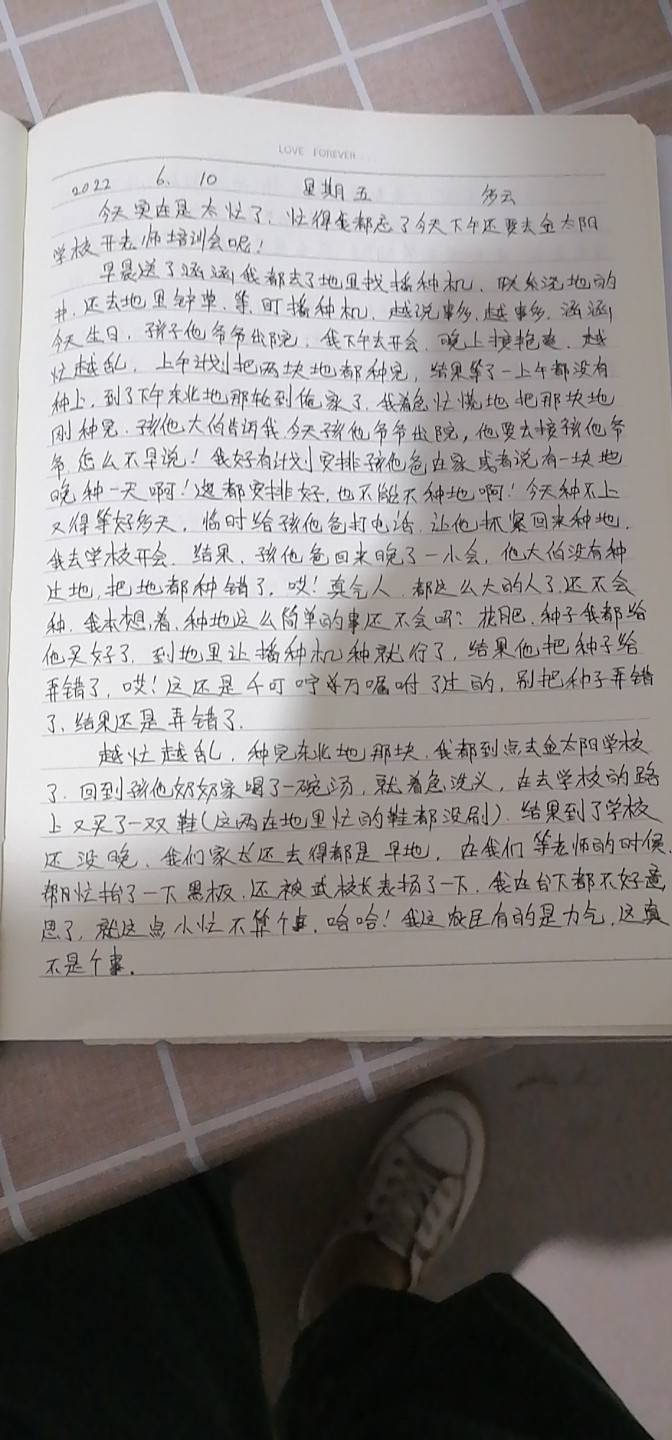 LOVE FOREVER
2022 6. 10 星期五 多云
今天实在是太忙了,忙得我都忘了今天下午还要去金太阳
学校开老师培训会呢!
早晨送了涵涵我都去了地里找播种机、联系浇地的
井,还去地里钟单、等盯播种机,越说事多,越事多,涵涵
今天生日,孩子他爷爷出院,我下午去开会,晚上接艳爽,越
忙越乱,上午计划把两块地都种完,结果等了一上午都没有
种上,到了下午东北地那轮到俺家了,我着急忙慌地把那块地
刚种完,孩他大伯告诉我今天孩他爷爷出院,他要去接孩他爷
爷,怎么不早说!我好有计划安排孩他爸在家或者说有一块地
晚种一天啊!这都安排好,也不能不种地啊!今天种不上
又得等好多天,临时给孩他爸打电话,让他抓紧回来种地,
我去学校开会,结果,孩他爸回来晚了一小会,他大伯没有种
过地,把地都种错了,哎!真气人,都这么大的人了,还不会
种,我本想着,种地这么简单的事还不会吗?花肥、种子我都给
他买好了,到地里让播种机种就行了,结果他把种子给
弄错了,哎!这还是千叮咛万嘱咐了过的,别把种子弄错
了、结果还是弄错了.
越忙越乱,种完东北地那块,我都到点去金太阳学校
了.回到孩他奶奶家喝了一碗汤,就着急洗义,在去学校的路
上又买了一双鞋(这两在地里忙的鞋都没刷),结果到了学校
还没晚,我们家长还去得都是早地,在我们等老师的时候,
帮忙抬了一下黑板,还被武校长表扬了一下,我在台下都不好意
思了,就这点小忙不算个事,哈哈!我这农民有的是力气,这真
不是个事.